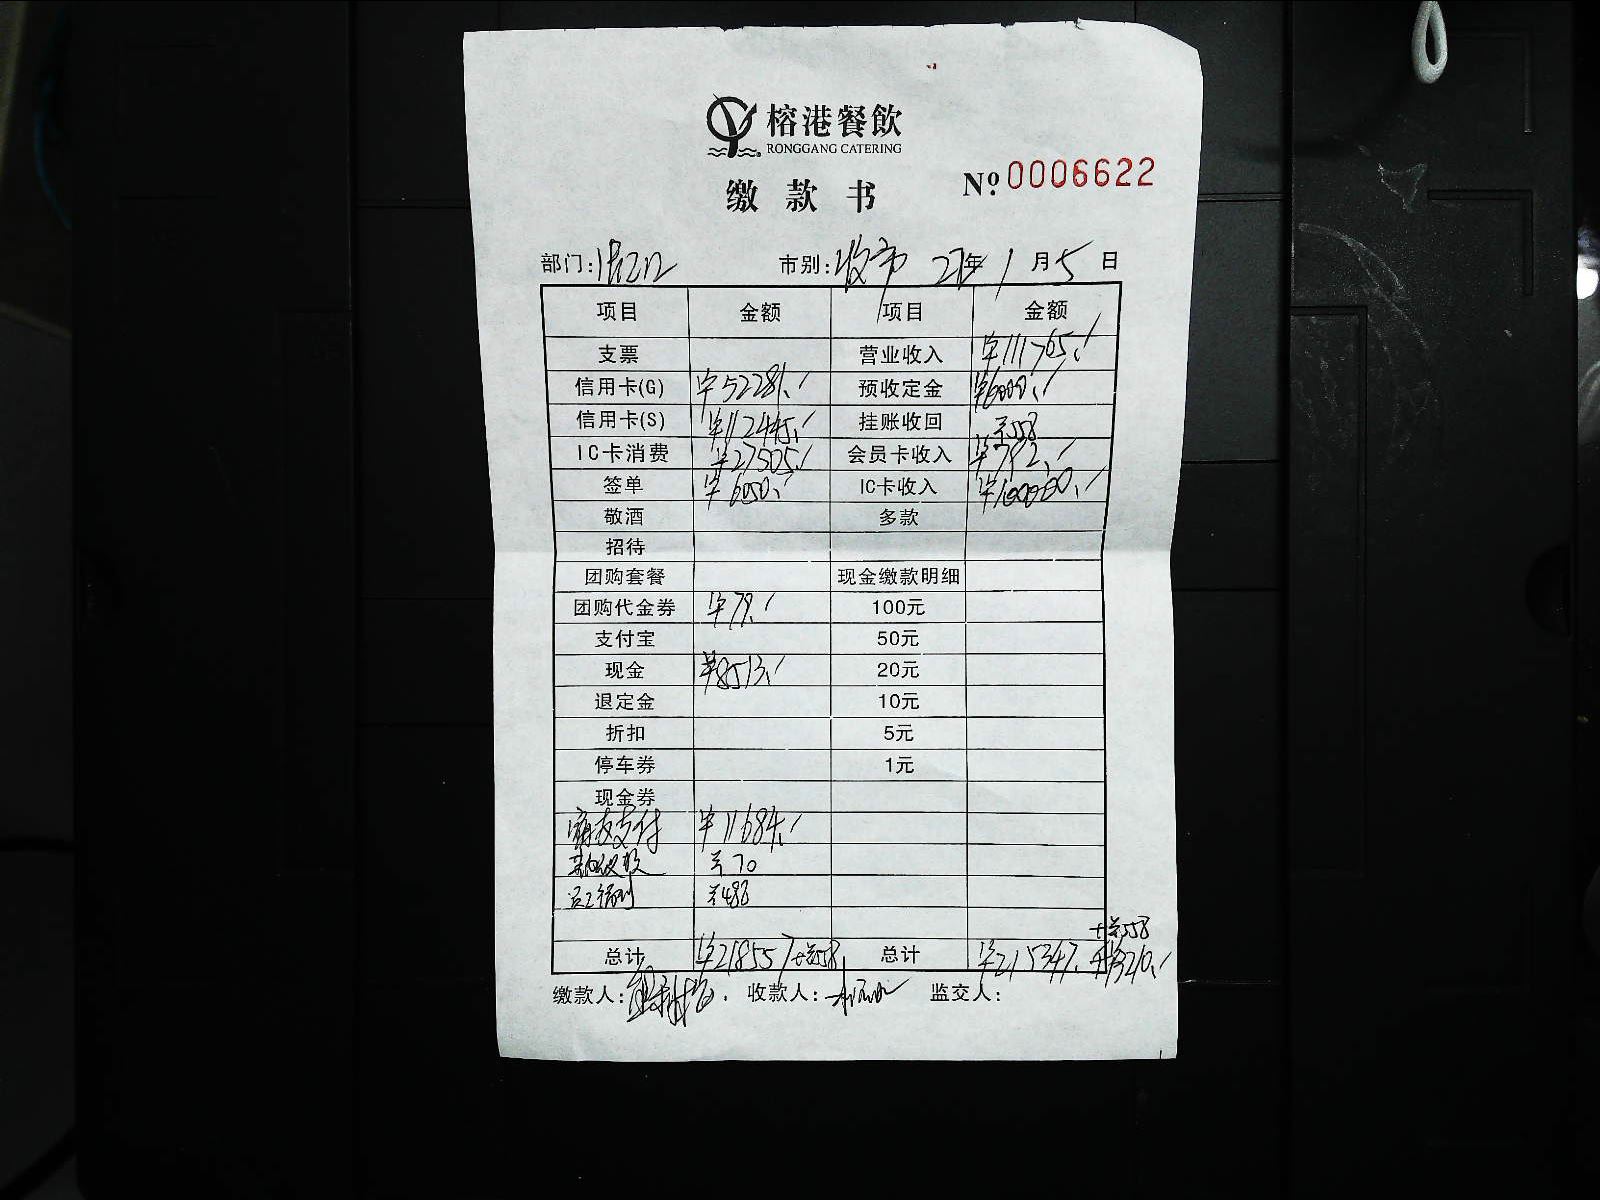 榕港餐飲
RONGGANG CATERING
缴款书
№ 0006622
部门: 市别:收市 年1月5日
项目 金额 项目 金额
支票 营业收入 ¥111765
信用卡(G) ¥52281 预收定金 ¥6000
信用卡(S) ¥112445 挂账收回 558
IC卡消费 ¥27505 会员卡收入 ¥792
签单 ¥6050 IC卡收入 ¥100000
敬酒 多款
招待
团购套餐 现金缴款明细
团购代金券 ¥79 100元
支付宝 50元
现金 ¥8513 20元
退定金 10元
折扣 5元
停车券 1元
现金券
支付 ¥11684
70
488
+558
总计 ¥218557+558 总计 ¥215347 +3210
缴款人: 收款人: 监交人: